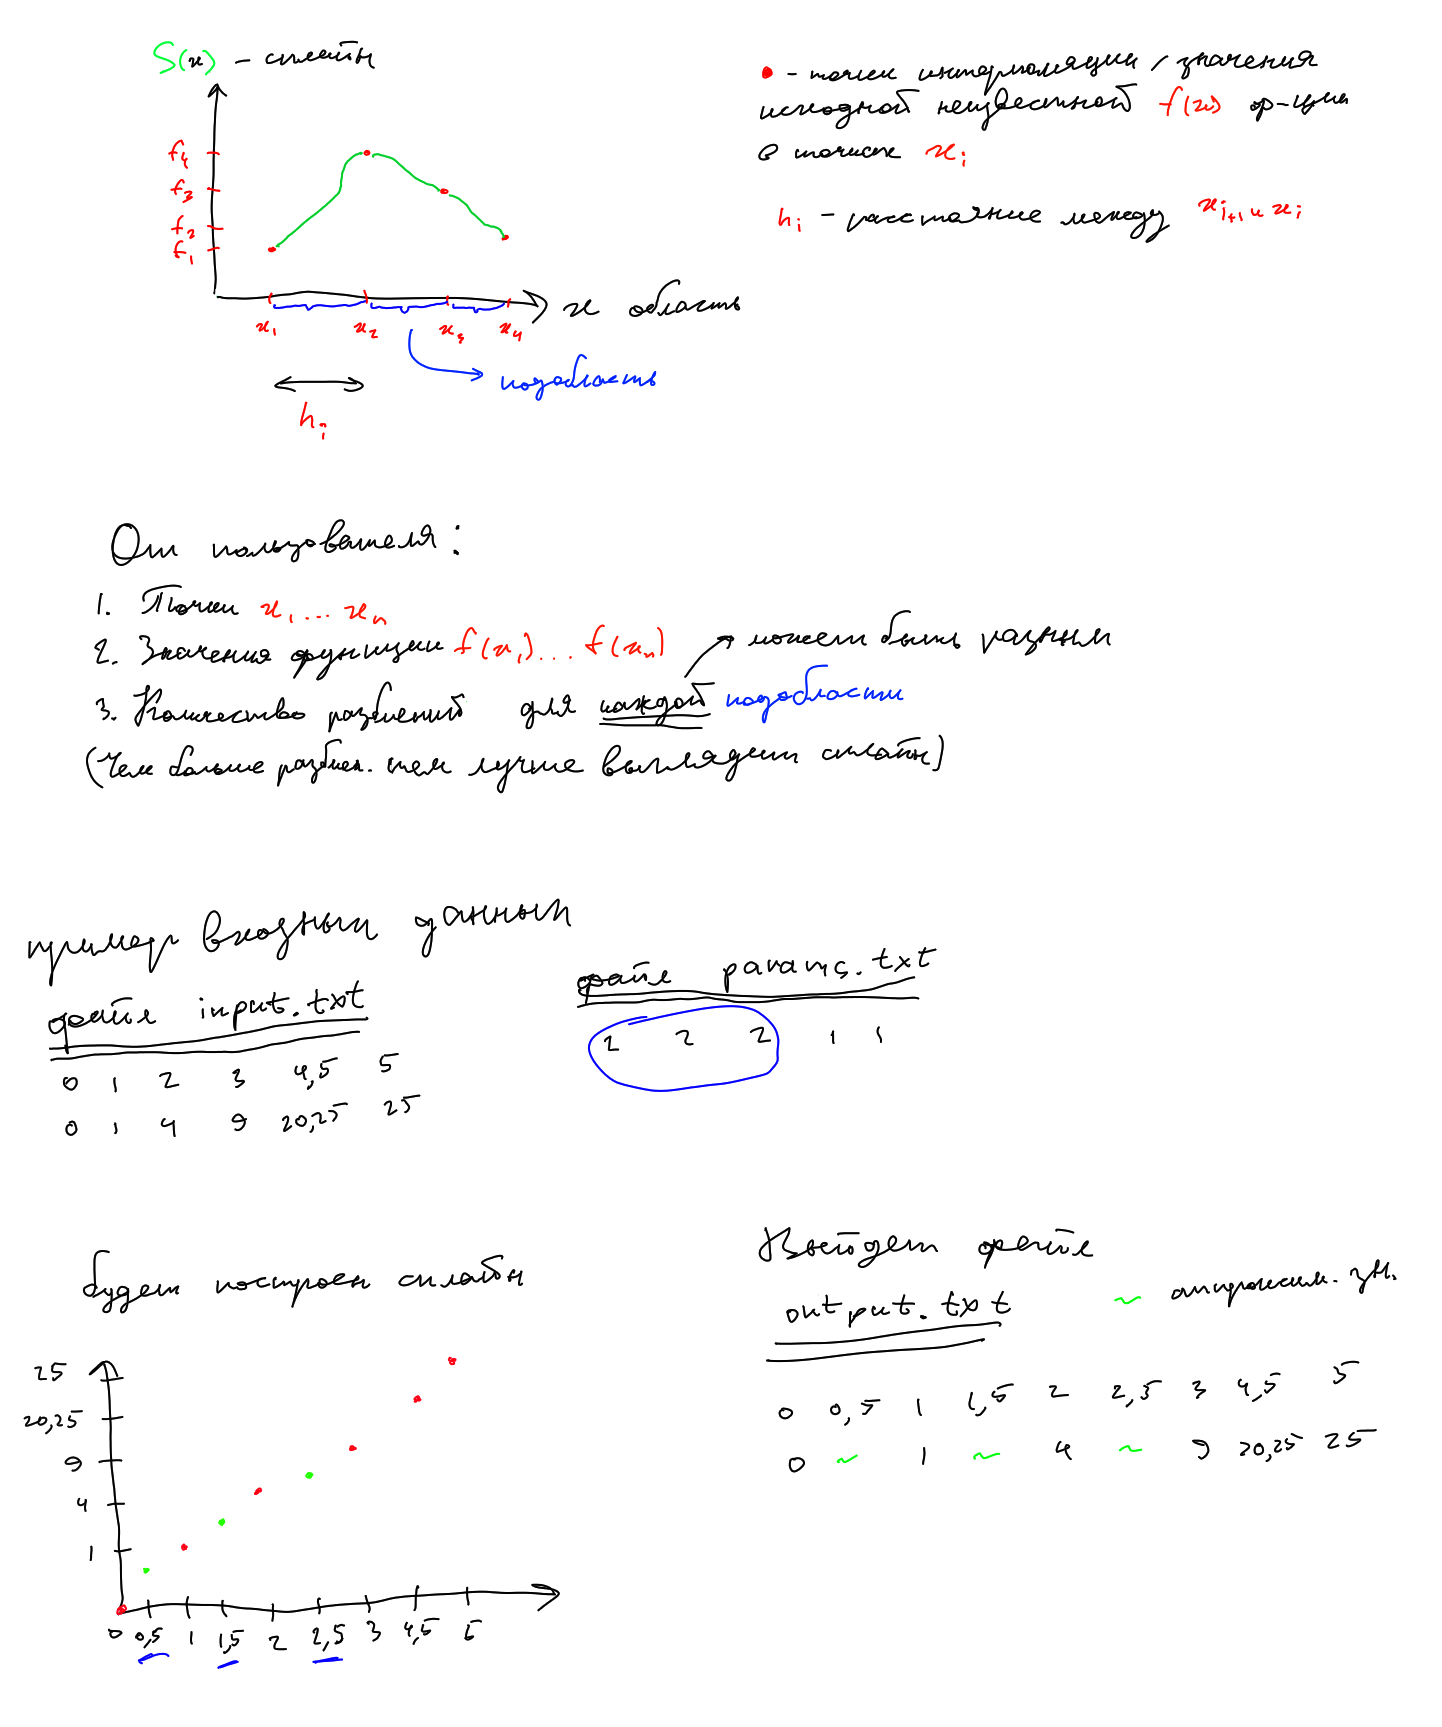 S(x) – сплайн
f₄
f₃
f₂
f₁
x₁ x₂ x₃ x₄
x область
подобласть
hᵢ
• – точки интерполяции / значения
исходной неизвестной f(x) ф-ции
в точках xᵢ
hᵢ – расстояние между xᵢ₊₁ и xᵢ
От пользователя:
1. Точки x₁ ... xₙ
2. Значения функции f(x₁) ... f(xₙ)
может быть разным
3. Количество разбиений для каждой подобласти
(Чем больше разбиен. тем лучше выглядит сплайн)
пример входных данных
файл input.txt
0 1 2 3 4,5 5
0 1 4 9 20,25 25
файл params.txt
2 2 2 1 1
будет построен сплайн
25
20,25
9
4
1
0 0,5 1 1,5 2 2,5 3 4,5 5
Выйдет файл
output.txt
~ аппроксим. зн.
0 0,5 1 1,5 2 2,5 3 4,5 5
0 ~ 1 ~ 4 ~ 9 20,25 25